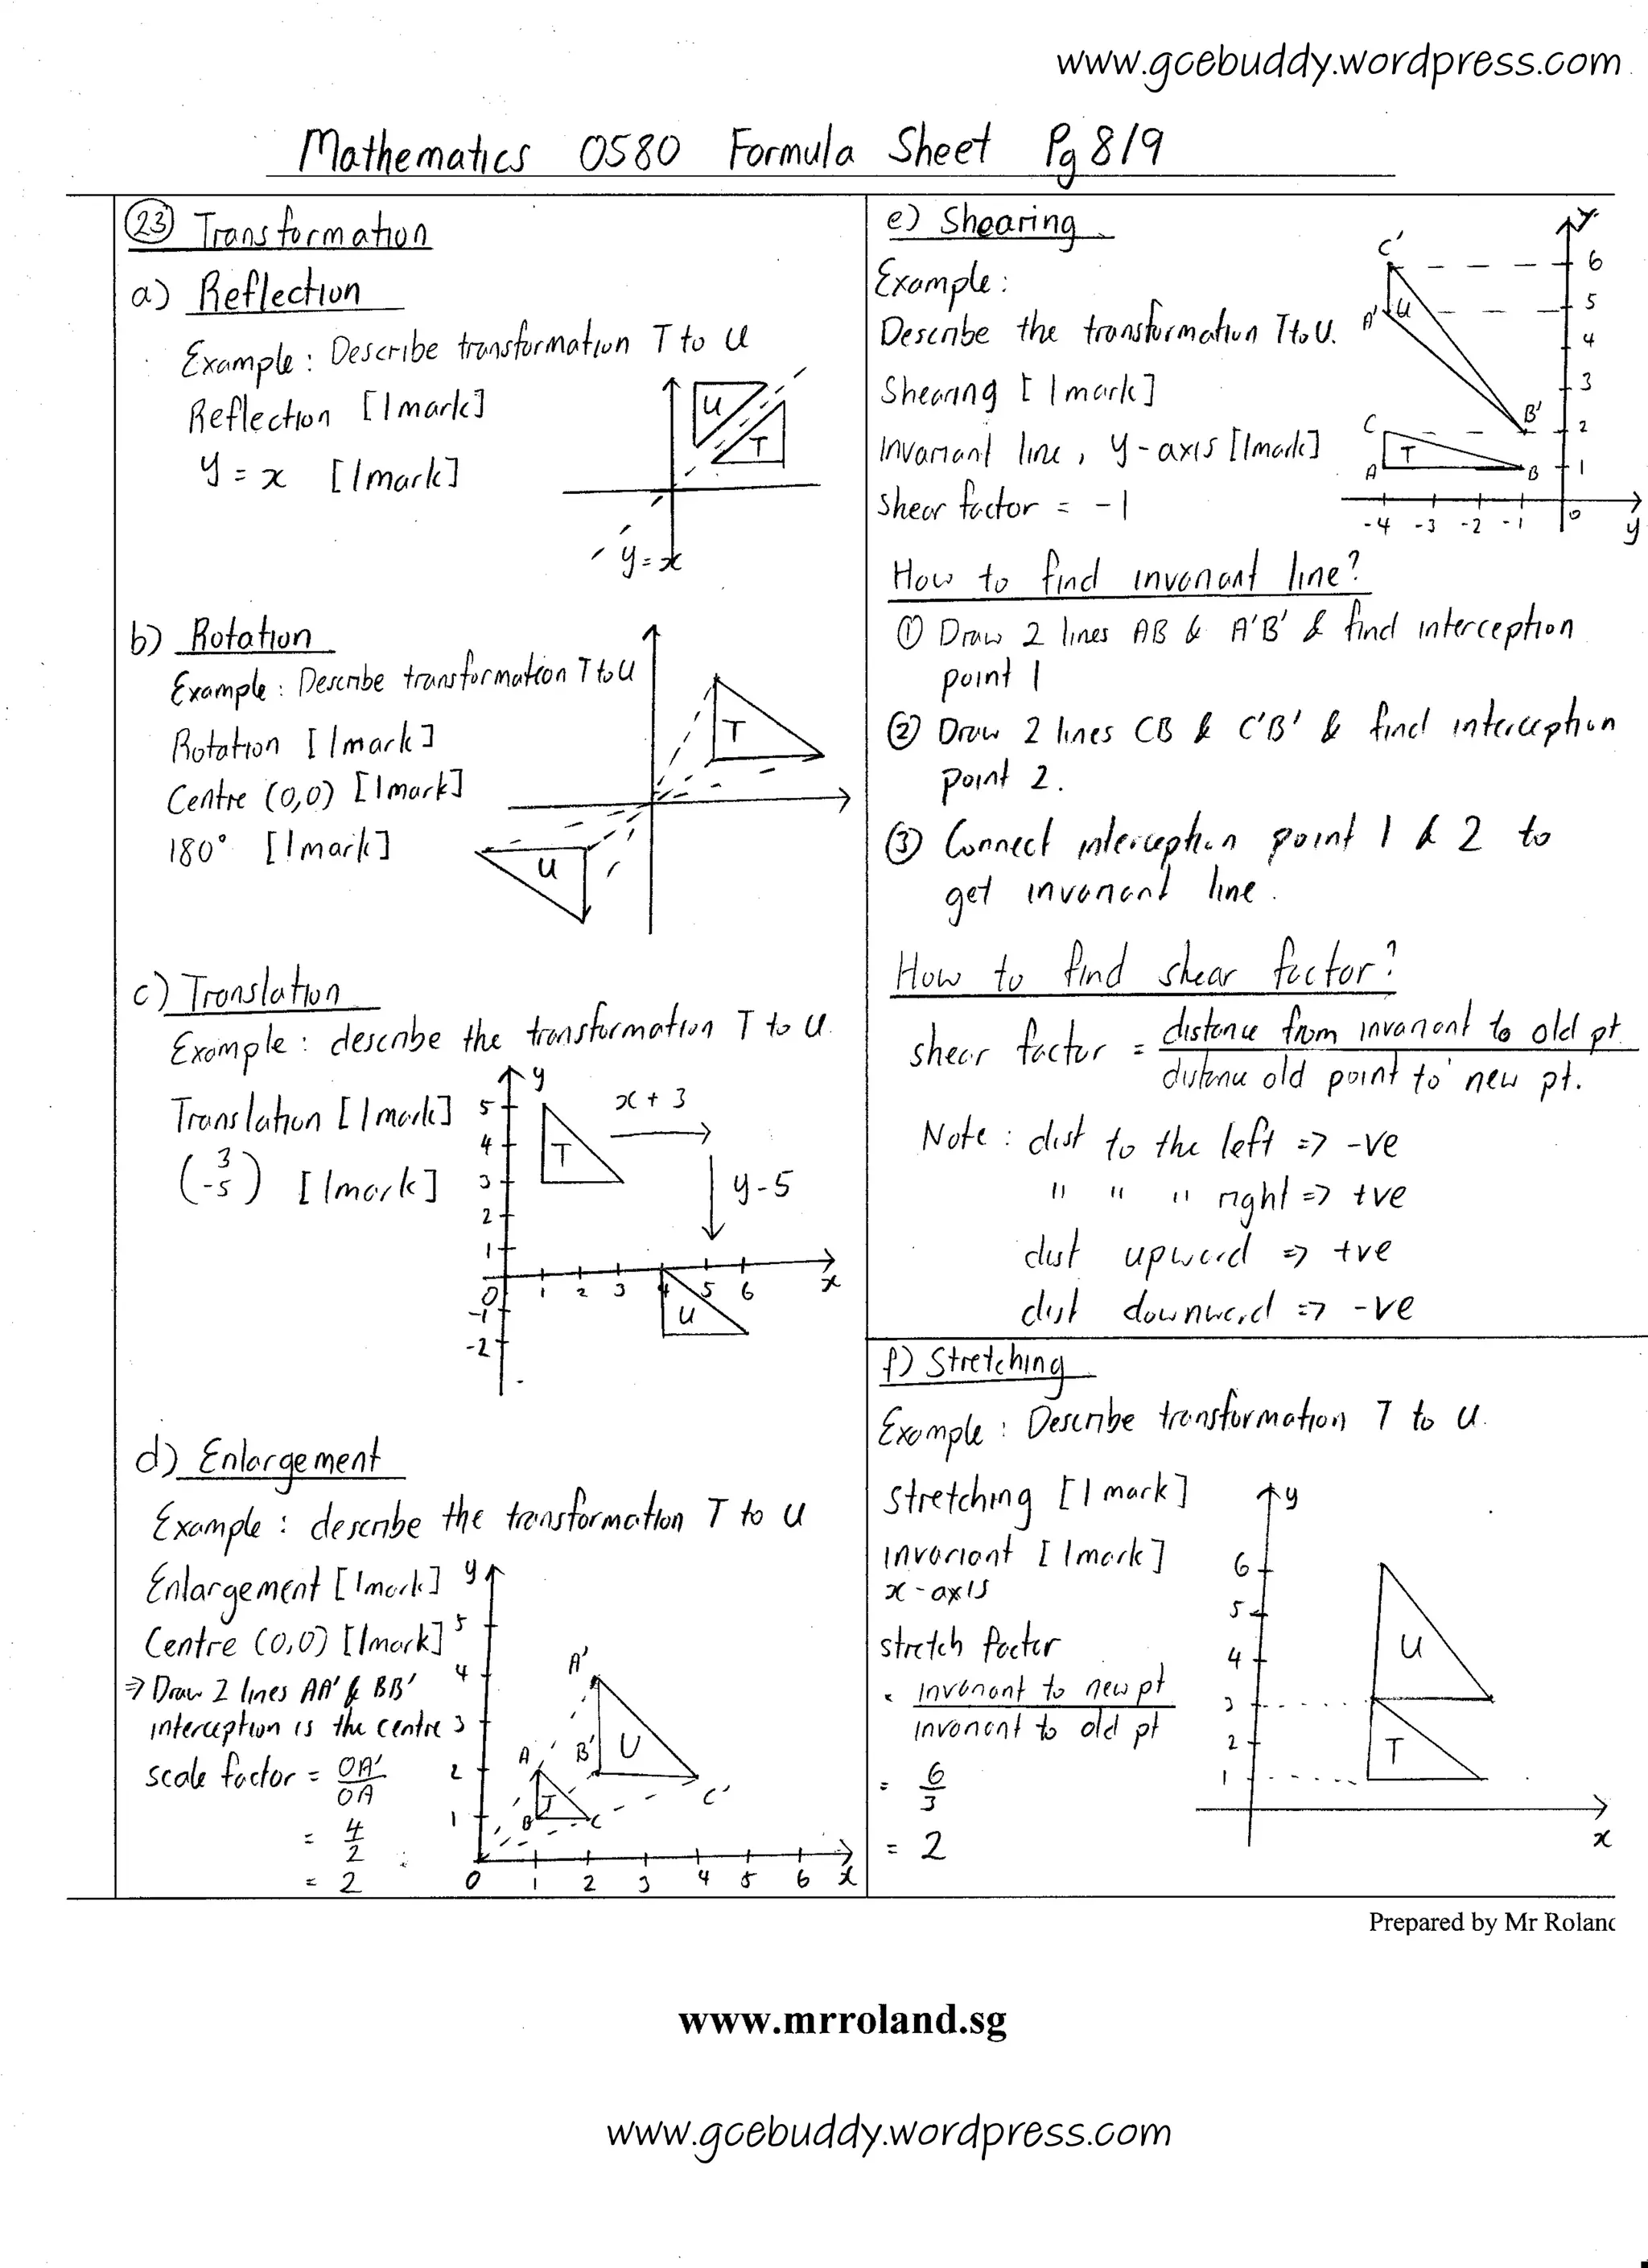 www.gcebuddy.wordpress.com
Mathematics 0580 Formula Sheet Pg 8/9
23 Transformation
a) Reflection
Example : Describe transformation T to U
Reflection [1mark]
y = x [1mark]
U
T
y = x
b) Rotation
Example : Describe transformation T to U
Rotation [1mark]
Centre (0,0) [1mark]
180° [1mark]
T
U
c) Translation
Example : describe the transformation T to U.
Translation [1mark]
(3
-5) [1mark]
y
5
4
3
2
1
0
-1
-2
T
x + 3
y - 5
1 2 3 4 5 6 x
U
d) Enlargement
Example : describe the transformation T to U
Enlargement [1mark]
Centre (0,0) [1mark]
⇒ Draw 2 lines AA' & BB'
interception is the centre
scale factor = OA'
OA
= 4
2
= 2
y
5
4
3
2
1
A'
B' U
C'
A
T
B C
0 1 2 3 4 5 6 x
e) Shearing
Example :
Describe the transformation T to U.
Shearing [1mark]
invariant line, y-axis [1mark]
shear factor = -1
y
C'
6
A' U
5
4
3
B'
2
C
T
A B
1
-4 -3 -2 -1 0 y
How to find invariant line?
① Draw 2 lines AB & A'B' & find interception
point 1
② Draw 2 lines CB & C'B' & find interception
point 2.
③ Connect interception point 1 & 2 to
get invariant line.
How to find shear factor?
shear factor = distance from invariant to old pt
distance old point to new pt.
Note : dist to the left => -ve
" " " right => +ve
dist upward => +ve
dist downward => -ve
f) Stretching
Example : Describe transformation T to U.
stretching [1 mark]
invariant [1mark]
x-axis
stretch factor
= invariant to new pt
invariant to old pt
= 6
3
= 2
y
6
5
4
3
2
1
U
T
x
Prepared by Mr Rolanc
www.mrroland.sg
www.gcebuddy.wordpress.com